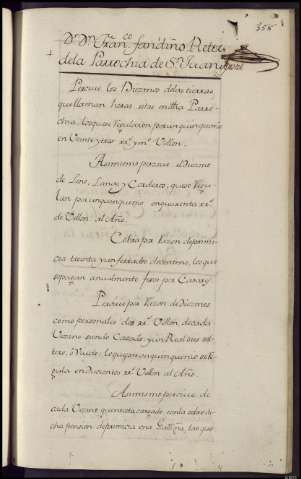 358
Dn. Dn. Franco. fandiño Retor
de la Parrochia de Sn. Juan
Percive los Diezmos de las tierras,
que llaman horas estas en dha Parro-
chia, los que se Regulan por un quinquenio
en Veinte y tres rs. y ms. Vellon.
Asimismo percive el Diezmo
de Lino, Lana, y Corderos, que se Regu-
lan por un quinquenio en quarenta rs.
de Vellon al Año.
Cobra por razon de primi-
cia treinta y un ferrados de centeno, los que
se pagan anualmente
Percive por Razon de Diezmos
como personales dos rs. Vellon de cada
Vezino siendo Casado, y un Real sies sol-
tero, ò Viudo, los que por un quinquenio se Re-
gula en Duzientos rs. Vellon al Año.
Asimismo percive de
cada Vezino que no está cargado con la sobre di-
cha pension de primicia una Gallina, las que